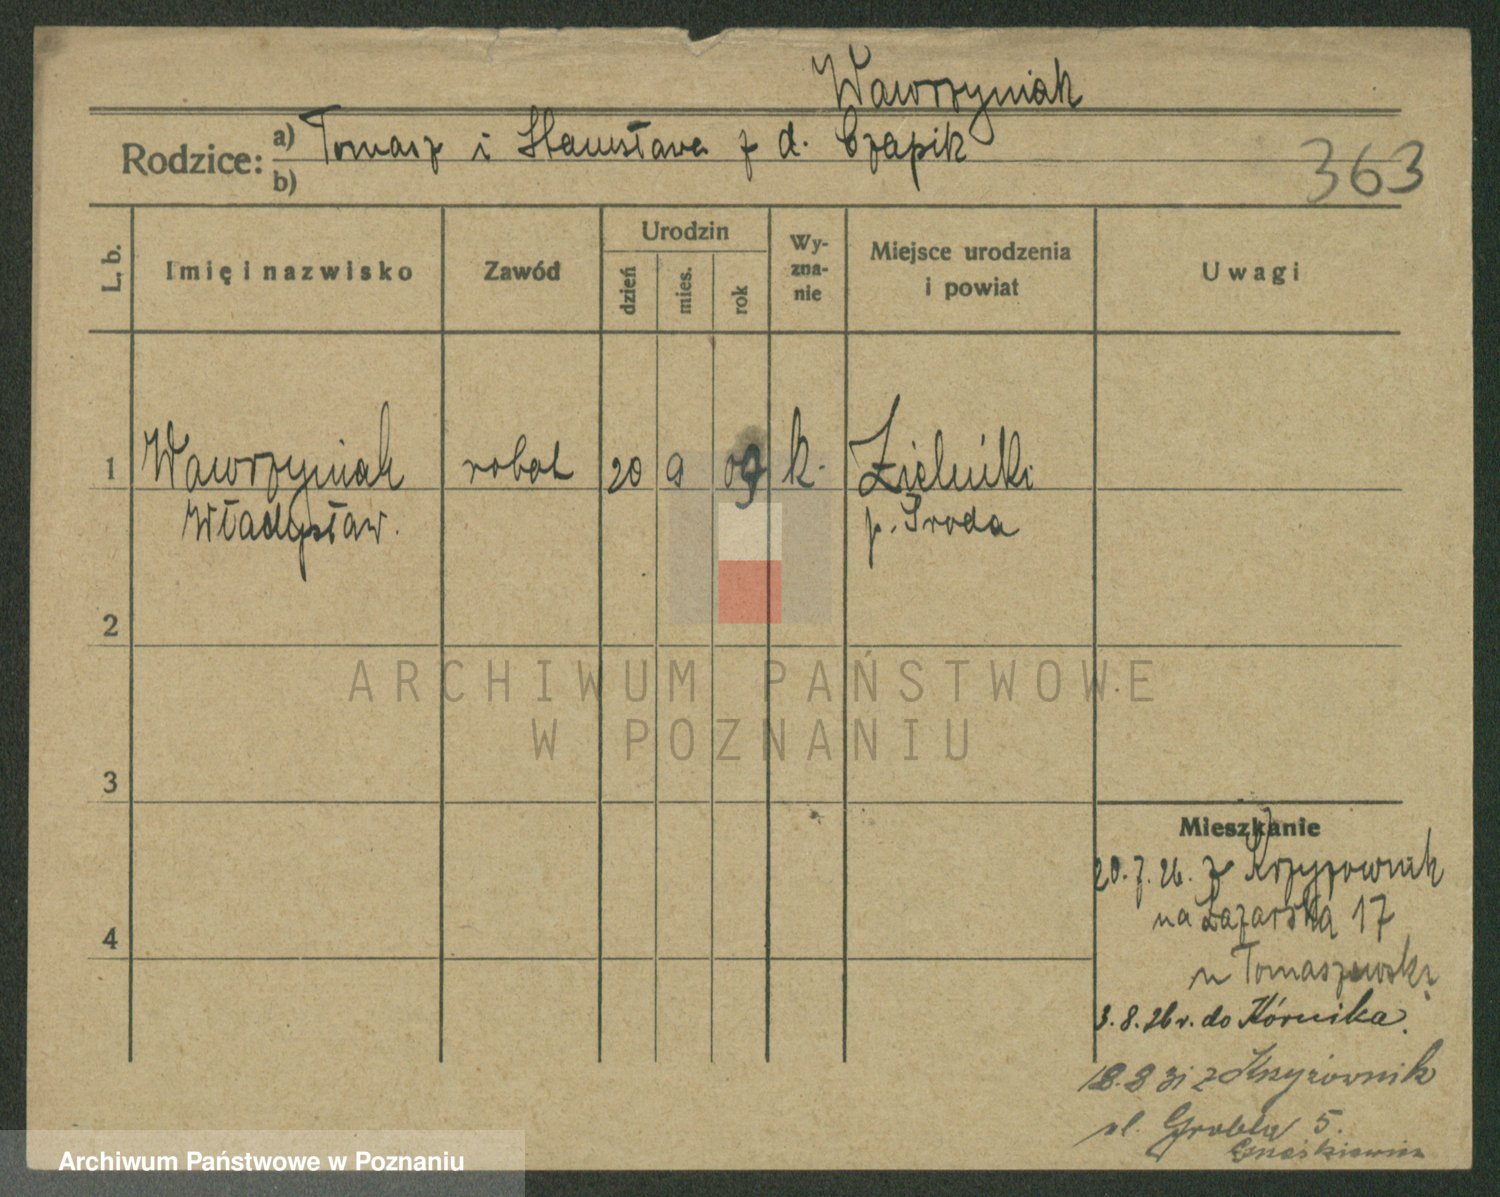 Wawrzyniak
Rodzice:
a) Tomasz i Stanisława z d. Czapik
b)
363
L. b.
Imię i nazwisko
Zawód
Urodzin
dzień
mies.
rok
Wy-
zna-
nie
Miejsce urodzenia
i powiat
Uwagi
1
Wawrzyniak
Władysław.
robot
20
9
09
k.
Zielniki
p. Środa
2
3
4
Mieszkanie
20. 7. 26. z Krzyżownik
na Łazarska 17
u Tomaszewski
3. 8. 26 r. do Kórnika.
z Krzyżownik
ul. Grobla 5.
ARCHIWUM PAŃSTWOWE
W POZNANIU
Archiwum Państwowe w Poznaniu